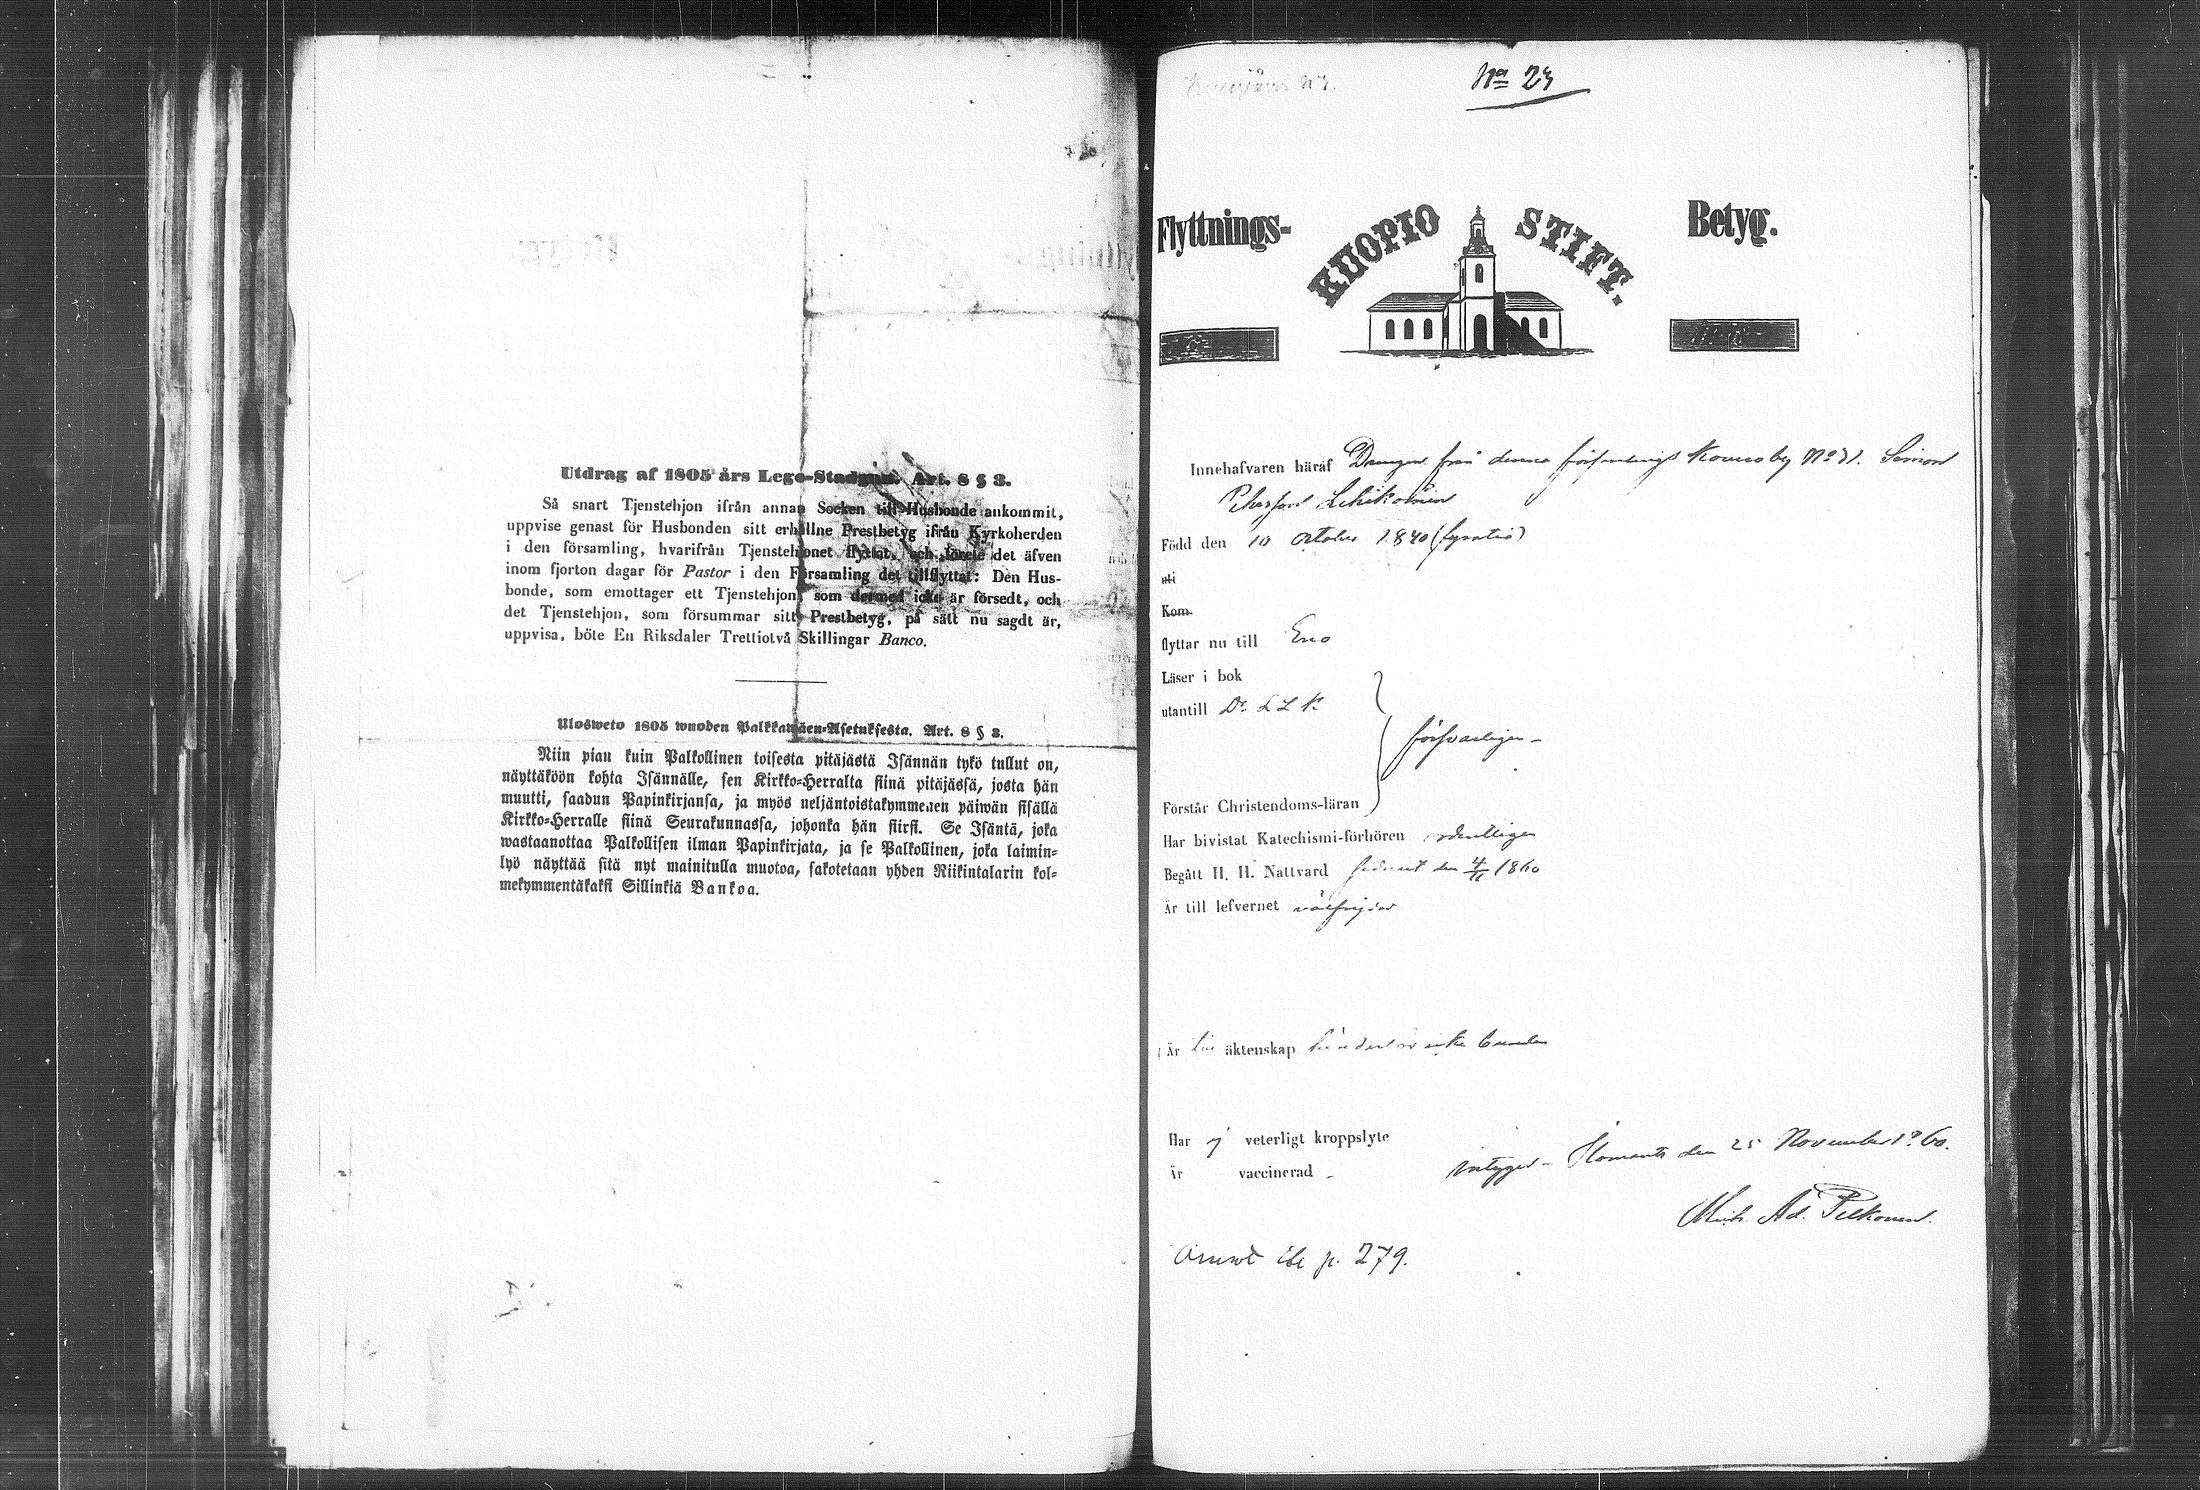 Utdrag af 1805 års Lego-Stadgan. Art. 8 § 3.
Så snart Tjenstehjon ifrån annan Socken till Husbonde ankommit,
uppvise genast för Husbonden sitt erhållne Prestbetyg ifrån Kyrkoherden
i den församling, hvarifrån Tjenstehjonet flyttat, och förete det äfven
inom fjorton dagar för Pastor i den Församling det tillflyttat: Den Hus-
bonde, som emottager ett Tjenstehjon, som dermed icke är försedt, och
det Tjenstehjon, som försummar sitt Prestbetyg, på sätt nu sagdt är,
uppvisa, böte En Riksdaler Trettiotvå Skillingar Banco.
Ulosweto 1805 wuoden Palkkawäen-Asetuksesta. Art. 8 § 3.
Niin pian kuin Palkollinen toisesta pitäjästä Isännän tykö tullut on,
näyttäköön kohta Isännälle, sen Kirkko-Herralta siinä pitäjässä, josta hän
muutti, saadun Papinkirjansa, ja myös neljäntoistakymmenen päiwän sisällä
Kirkko-Herralle siinä Seurakunnassa, johonka hän siirsi. Se Isäntä, joka
wastaanottaa Palkollisen ilman Papinkirjata, ja se Palkollinen, joka laimin-
lyö näyttää sitä nyt mainitulla muotoa, sakotetaan yhden Riikintalarin kol-
mekymmentäkaksi Sillinkiä Bankoa.
No 23
Flyttnings- KUOPIO STIFT. Betyg.
Innehafvaren häraf Drengen från denna församlings Kovero by No 31. Simon
Petersson Lehikoinen
Född den 10 October 1840 (fyratio)
uti
Kom
flyttar nu till Eno
Läser i bok
utantill Dr. L L K
försvarligen
Förstår Christendoms-läran
Har bivistat Katechismi-förhören ordentligen
Begått H. H. Nattvard sednast den 1860
Är till lefvernet välfrejdad
Är till äktenskap hinderlös icke bunden
Har ej veterligt kroppslyte
Är vaccinerad
intygar Ilomants den 25 November 1860.
Mich. Ad. Pelkonen.
p. 279.